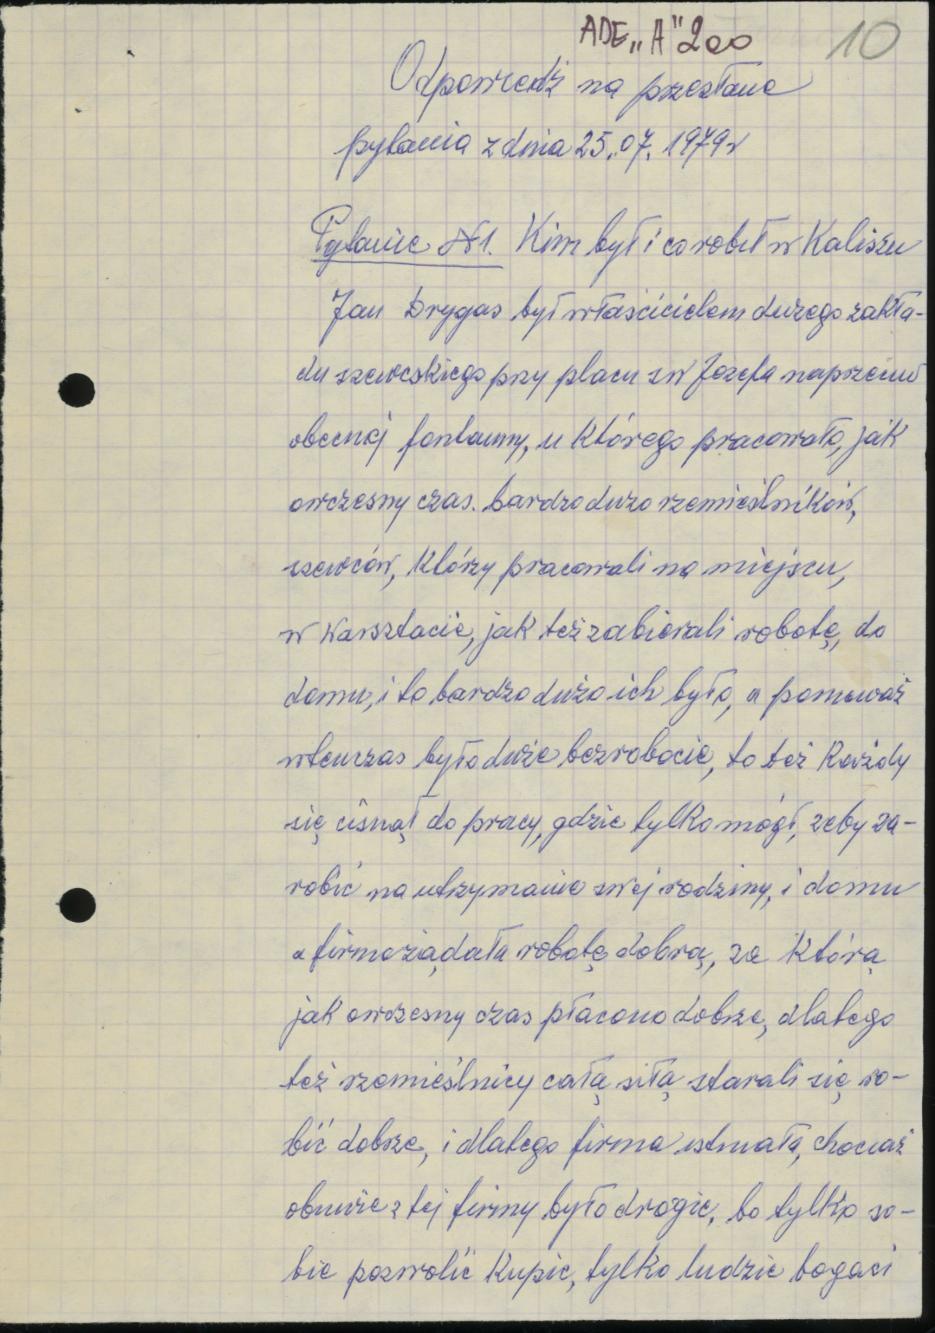 ADE „A" 200
10
Odpowiedź na przesłane
pytania z dnia 25.07.1979 r
Pytanie N 1. Kim był i co robił w Kaliszu
Jan Drygas był właścicielem dużego zakła-
du szewckiego przy placu św Józefa naprzeciw
obecnej fontanny, u którego pracowało, jak
owczesny czas. bardzo dużo rzemieślników,
szewców, którzy pracowali na miejscu,
w warsztacie, jak też zabierali robotę, do
domu, i to bardzo dużo ich było, a pomeważ
wtenczas było duże bezrobocie, to też każdy
się cisnął do pracy, gdzie tylko mógł, żeby za-
robić na utrzymanie swej rodziny, i domu
a firma żądała robotę dobrą, za którą
jak owczesny czas płacono dobrze, dlatego
też rzemieślnicy całą siłą starali się ro-
bić dobrze, i dlatego firma istniała, chociaż
obuwie z tej firmy było drogie, bo tylko so-
bie pozwolić kupic, tylko ludzie bogaci